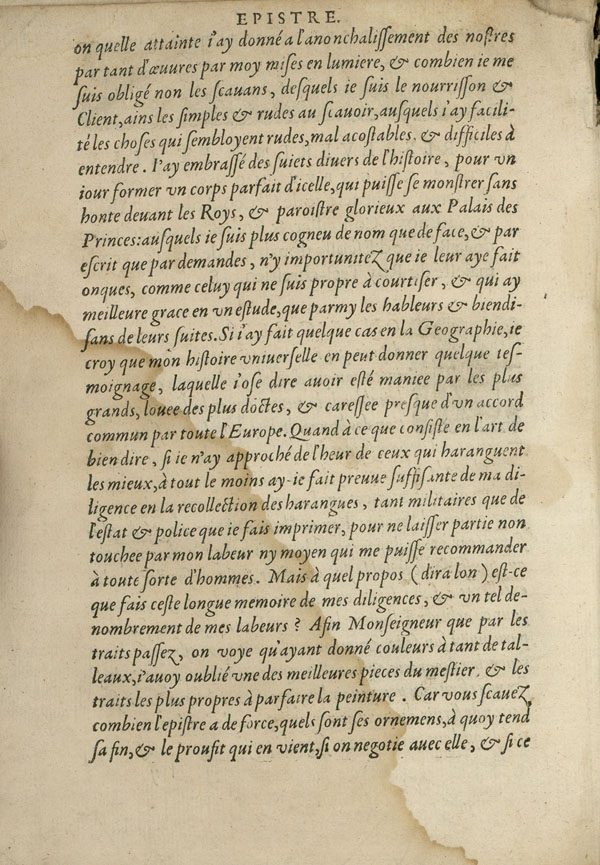 EPISTRE.
on quelle attainte i'ay donné a l'anonchalissement des nostres
par tant d'œuures par moy mises en lumiere, & combien ie me
suis obligé non les scauans, desquels ie suis le nourrisson &
Client, ains les simples & rudes au scauoir, ausquels i'ay facili-
té les choses qui sembloyent rudes, mal acostables. & difficiles à
entendre. I'ay embrassé des suiets diuers de l'histoire, pour vn
iour former vn corps parfait d'icelle, qui puisse se monstrer sans
honte deuant les Roys, & paroistre glorieux aux Palais des
Princes: ausquels ie suis plus cogneu de nom que de face, & par
escrit que par demandes, n'y importunitez que ie leur aye fait
onques, comme celuy qui ne suis propre à courtiser, & qui ay
meilleure grace en vn estude, que parmy les hableurs & biendi-
sans de leurs suites. Si i'ay fait quelque cas en la Geographie, ie
croy que mon histoire vniuerselle en peut donner quelque tes-
moignage, laquelle i'ose dire auoir esté maniee par les plus
grands, louee des plus doctes, & caressee presque d'vn accord
commun par toute l'Europe. Quand à ce que consiste en l'art de
bien dire, si ie n'ay approché de l'heur de ceux qui haranguent
les mieux, à tout le moins ay-ie fait preuue suffisante de ma di-
ligence en la recollection des harangues, tant militaires que de
l'estat & police que ie fais imprimer, pour ne laisser partie non
touchee par mon labeur ny moyen qui me puisse recommander
à toute sorte d'hommes. Mais à quel propos (dira lon) est-ce
que fais ceste longue memoire de mes diligences, & vn tel de-
nombrement de mes labeurs? Afin Monseigneur que par les
traits passez, on voye qu'ayant donné couleurs à tant de tal-
leaux, i'auoy oublié vne des meilleures pieces du mestier. & les
traits les plus propres à parfaire la peinture. Car vous scauez
combien l'epistre a de force, quels sont ses ornemens, à quoy tend
sa fin, & le proufit qui en vient, si on negotie auec elle, & si ce